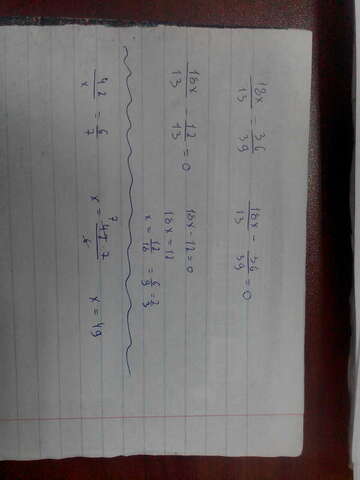 18x/13 = 36/39    18x/13 - 36/39 = 0
18x/13 - 12/13 = 0    18x - 12 = 0
18x = 12
x = 12/18 = 6/9 = 2/3
42/x = 6/7    x = 42 7/6    x = 49